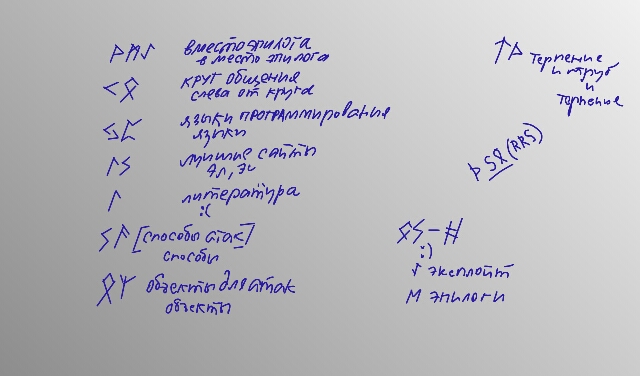 ᚦᛗᛇ вместоэпилога
в место эпилога
ᚲᛟ круг общения
слева от круга
языки программирования
языки
ᛚᛊ лучшие сайты
ᛚ литература
:(
ᛊᚨ [способы атак]
способы
ᛟᛉ объекты для атак
объекты
ᛏᚦ Терпение
и труб
и
терпение
(RRS)
ᛟᛊ-#
:)
эксплойт
M эпилоги